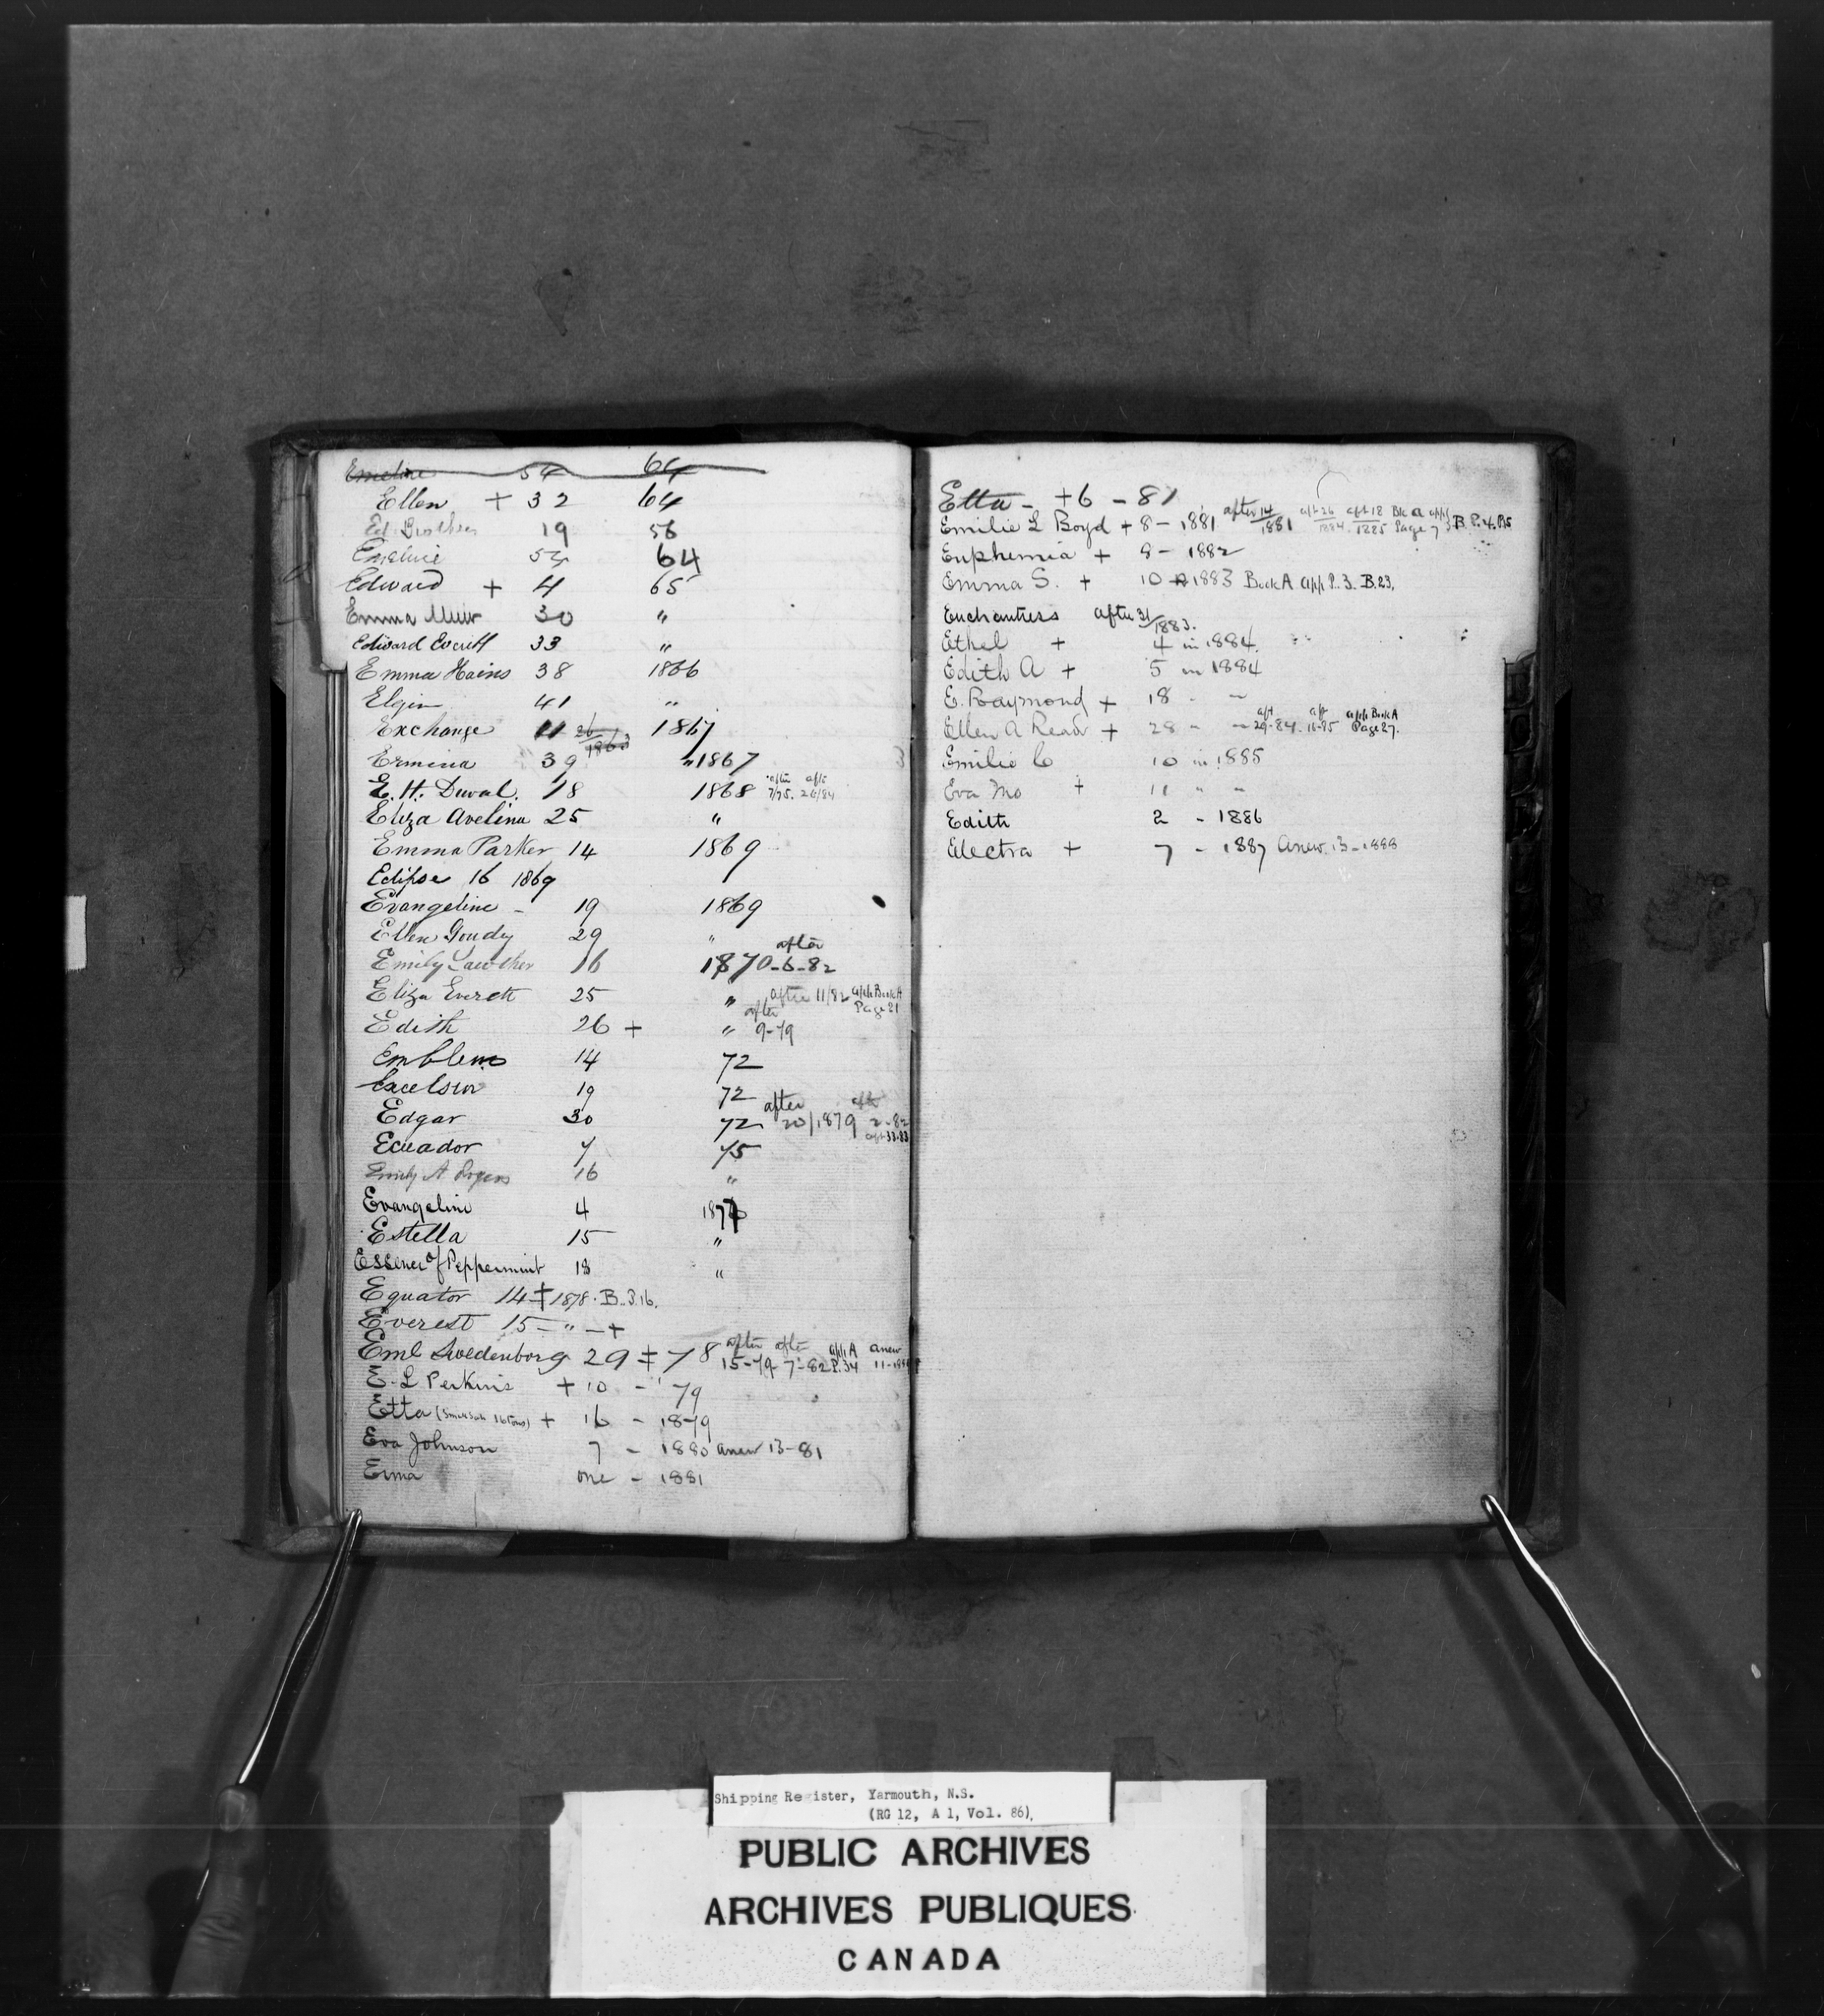 Emeline 54 64
Ellen + 32 64
Ed. Brothers 19 56
Emeline 54 64
Edward + 4 65
Emma Muir 30 "
Edward Everitt 33 "
Emma Hains 38 1866
Elgin 41 "
Exchange 11 26/1863 1867
Ermina 39 " 1867
E. H. Duval. 18 1868 after 7/75. aftr 26/84
Eliza Avelina 25 "
Emma Parker 14 1869
Eclipse 16 1869
Evangeline - 19 1869
Ellen Goudey 29 "
Emily Lawther 16 1870 after -6-82
Eliza Everett 25 " after 11/82 aft Book A Page 21
Edith 26 + " after 9-79
Emblem 14 72
Excelsior 19 72
Edgar 30 72 after 20/1879 aft 2-82 aft 33-83
Ecuador 7 75
Emily A Rogers 16 "
Evangeline 4 187
Estella 15 "
Essence of Peppermint 18 "
Equator 14 ‡ 1878. B. 3.16.
Everest 15 - " - +
Eml Swedenborg 29 ‡ 78 after 15-79 after 7-82 aft A P.34 anew
E. L Perkins + 10 - ' 79
Etta + 16 - 1879
Eva Johnson 7 - 1880 anew 13-81
Erma one - 1881
Etta - +6 - 81
Emilie L Boyd + 8 - 1881 after 14/1881 aft 26/1884 aft 18/1885 Bk A Page 7 B. P. 4.
Euphemia + 8 - 1882
Emma S. + 10 1883 Book A app P. 3. B. 23.
Enchantress after 31/1883.
Ethel + 4 in 1884.
Edith A + 5 in 1884
E. Raymond + 18 - "
Ellen A Read + 28 - " aft 29-84. aft 16-85 app Book A Page 27.
Emilie C 10 in 1885
Eva Mo + 11 " "
Edith 2 - 1886
Electra + 7 - 1887 Anew. 13-1888
Shipping Register, Yarmouth, N.S.
(RG 12, A 1, Vol. 86).
PUBLIC ARCHIVES
ARCHIVES PUBLIQUES
CANADA